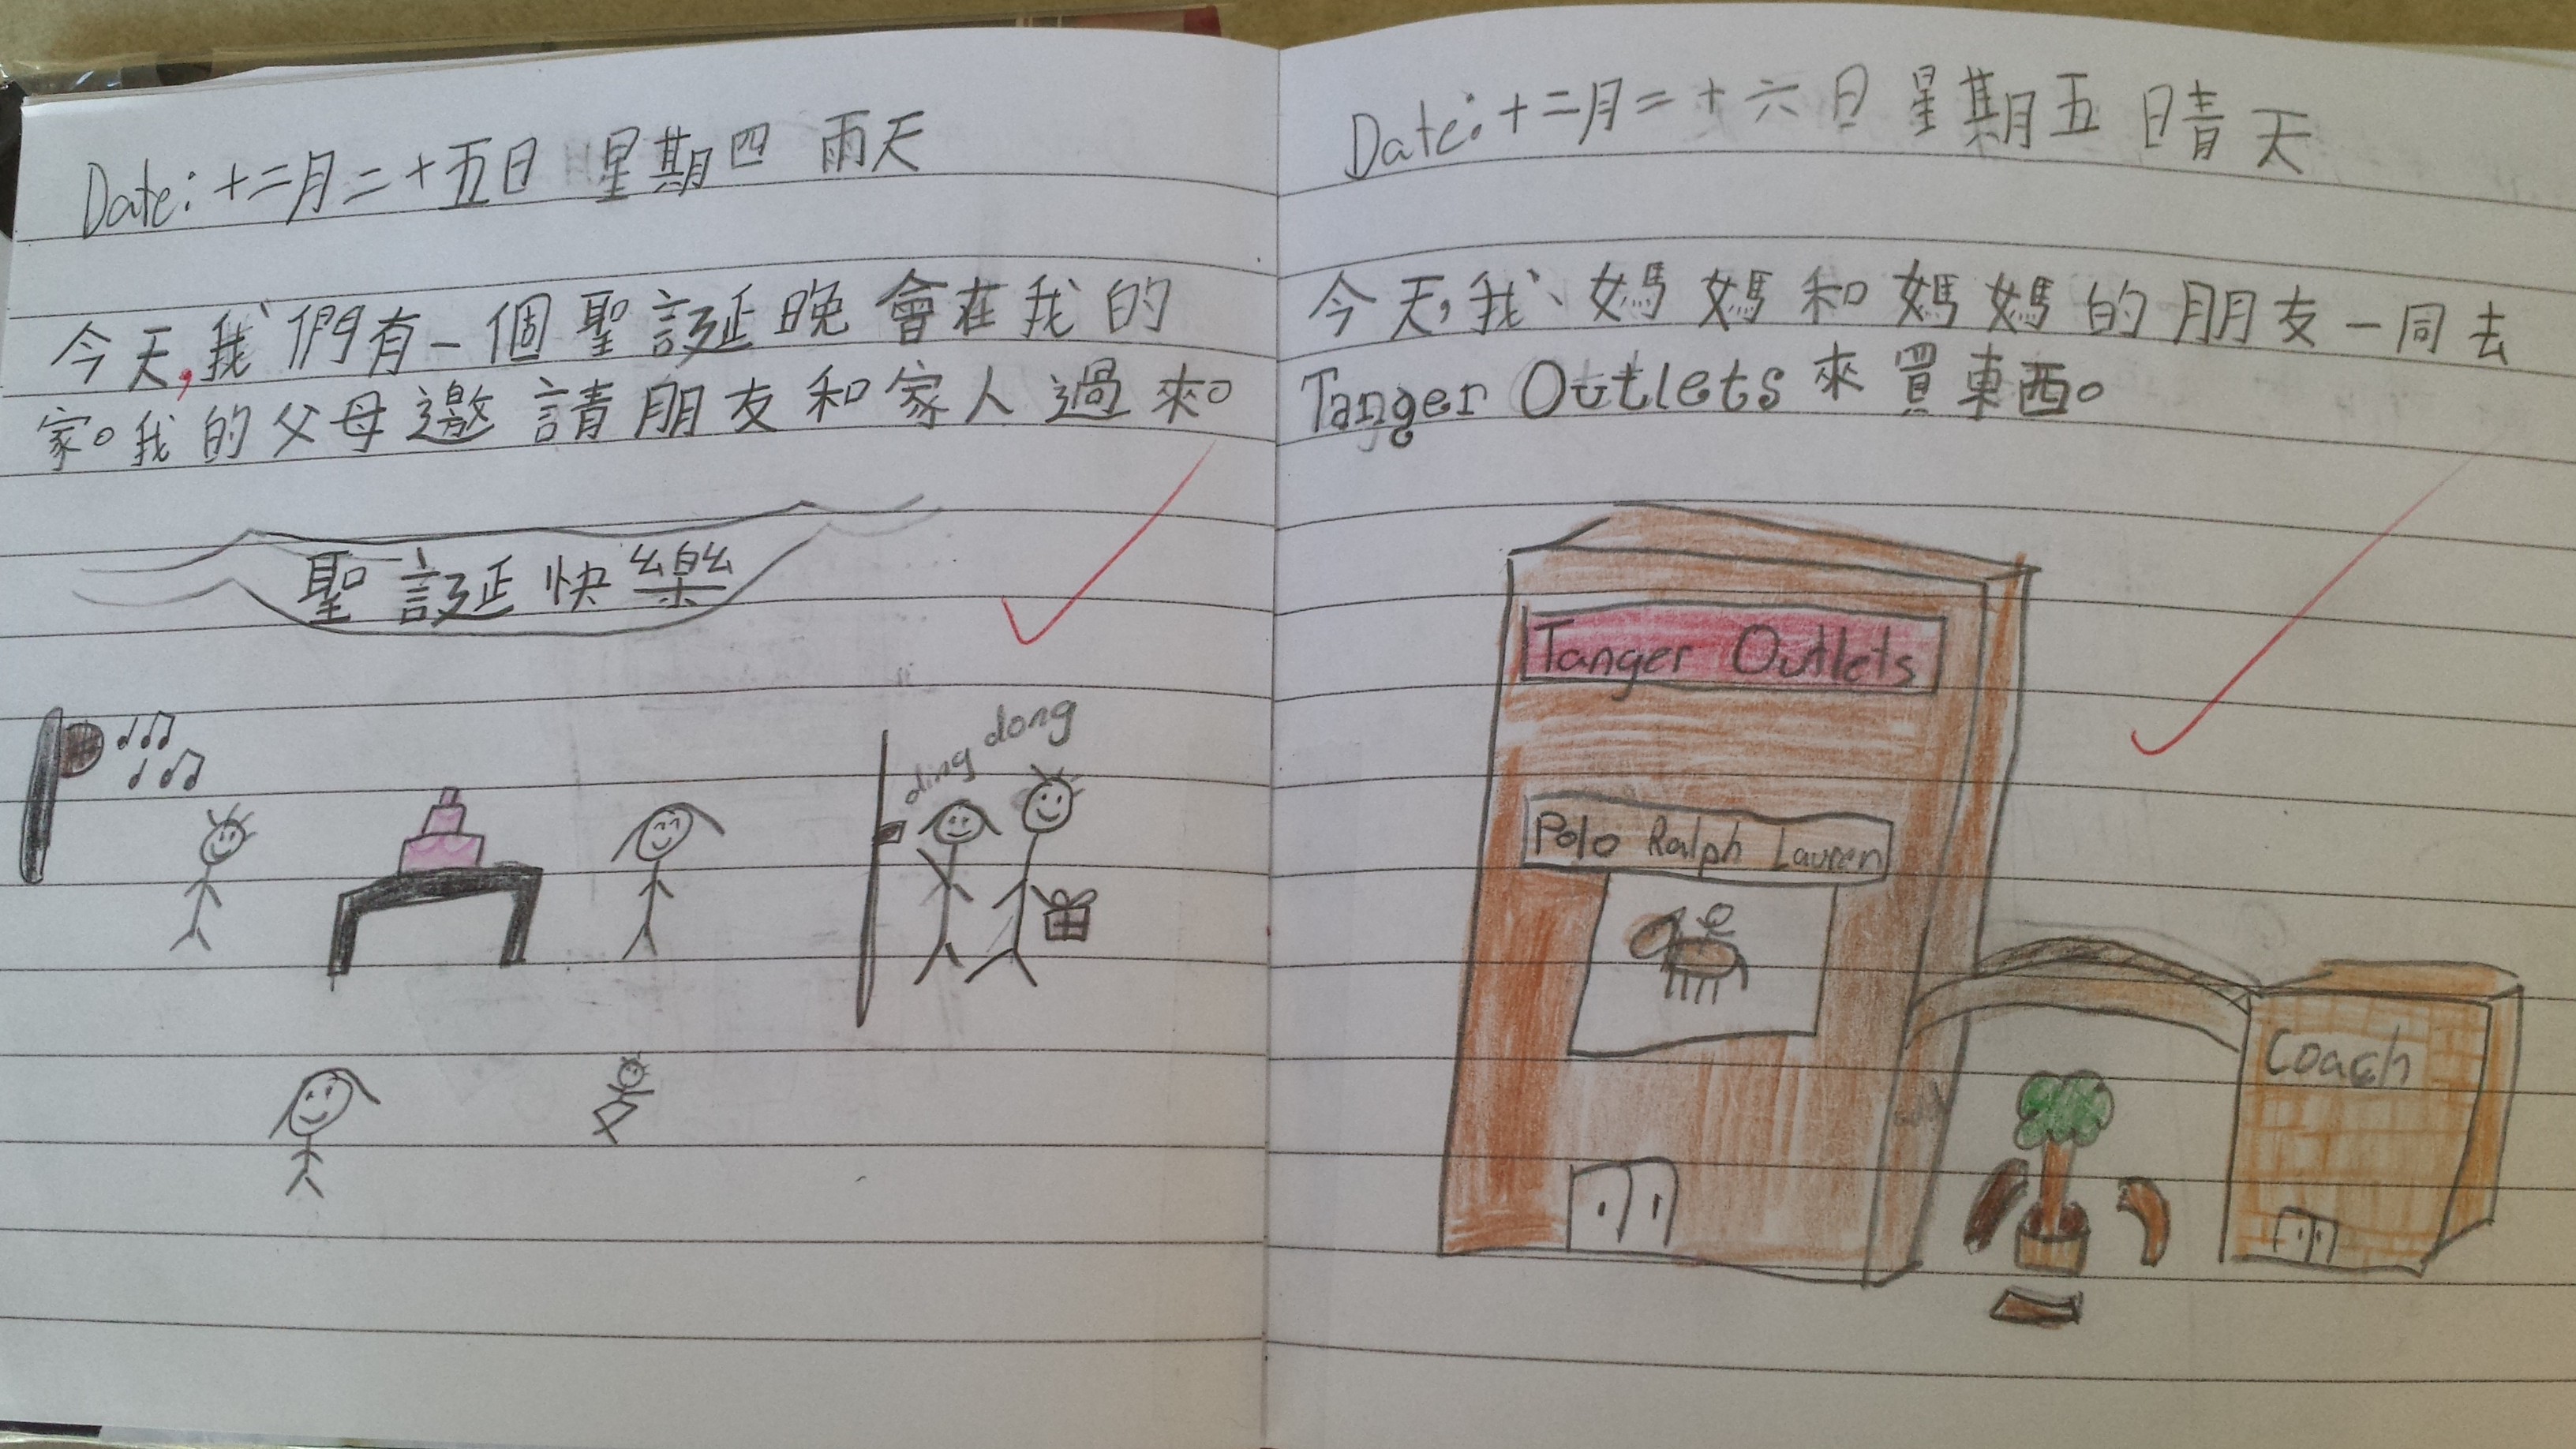 Date: 十二月二十五日 星期四 雨天
今天,我們有一個聖誕晚會在我的
家。我的父母邀請朋友和家人過來。
聖誕快樂
ding dong
Date: 十二月二十六日 星期五 晴天
今天,我、媽媽和媽媽的朋友一同去
Tanger Outlets 來買東西。
Tanger Outlets
Polo Ralph Lauren
Coach